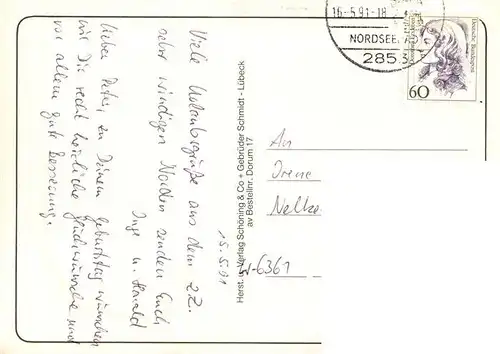 Viele Urlaubsgrüße aus dem z.Z.
sehr windigen Norden senden Euch
Inge u. Harald
Lieber Peter, zu Deinem Geburtstag wünschen
wir Dir recht herzliche Glückwünsche und
vor allem gute Besserung.
15.5.91
Herst. u. Verlag Schöning & Co + Gebrüder Schmidt - Lübeck
av Bestellnr. Dorum 17
16.-5.91-18
NORDSEE
2853
Deutsche Bundespost
60
An
Irene
Nelke
W-6361